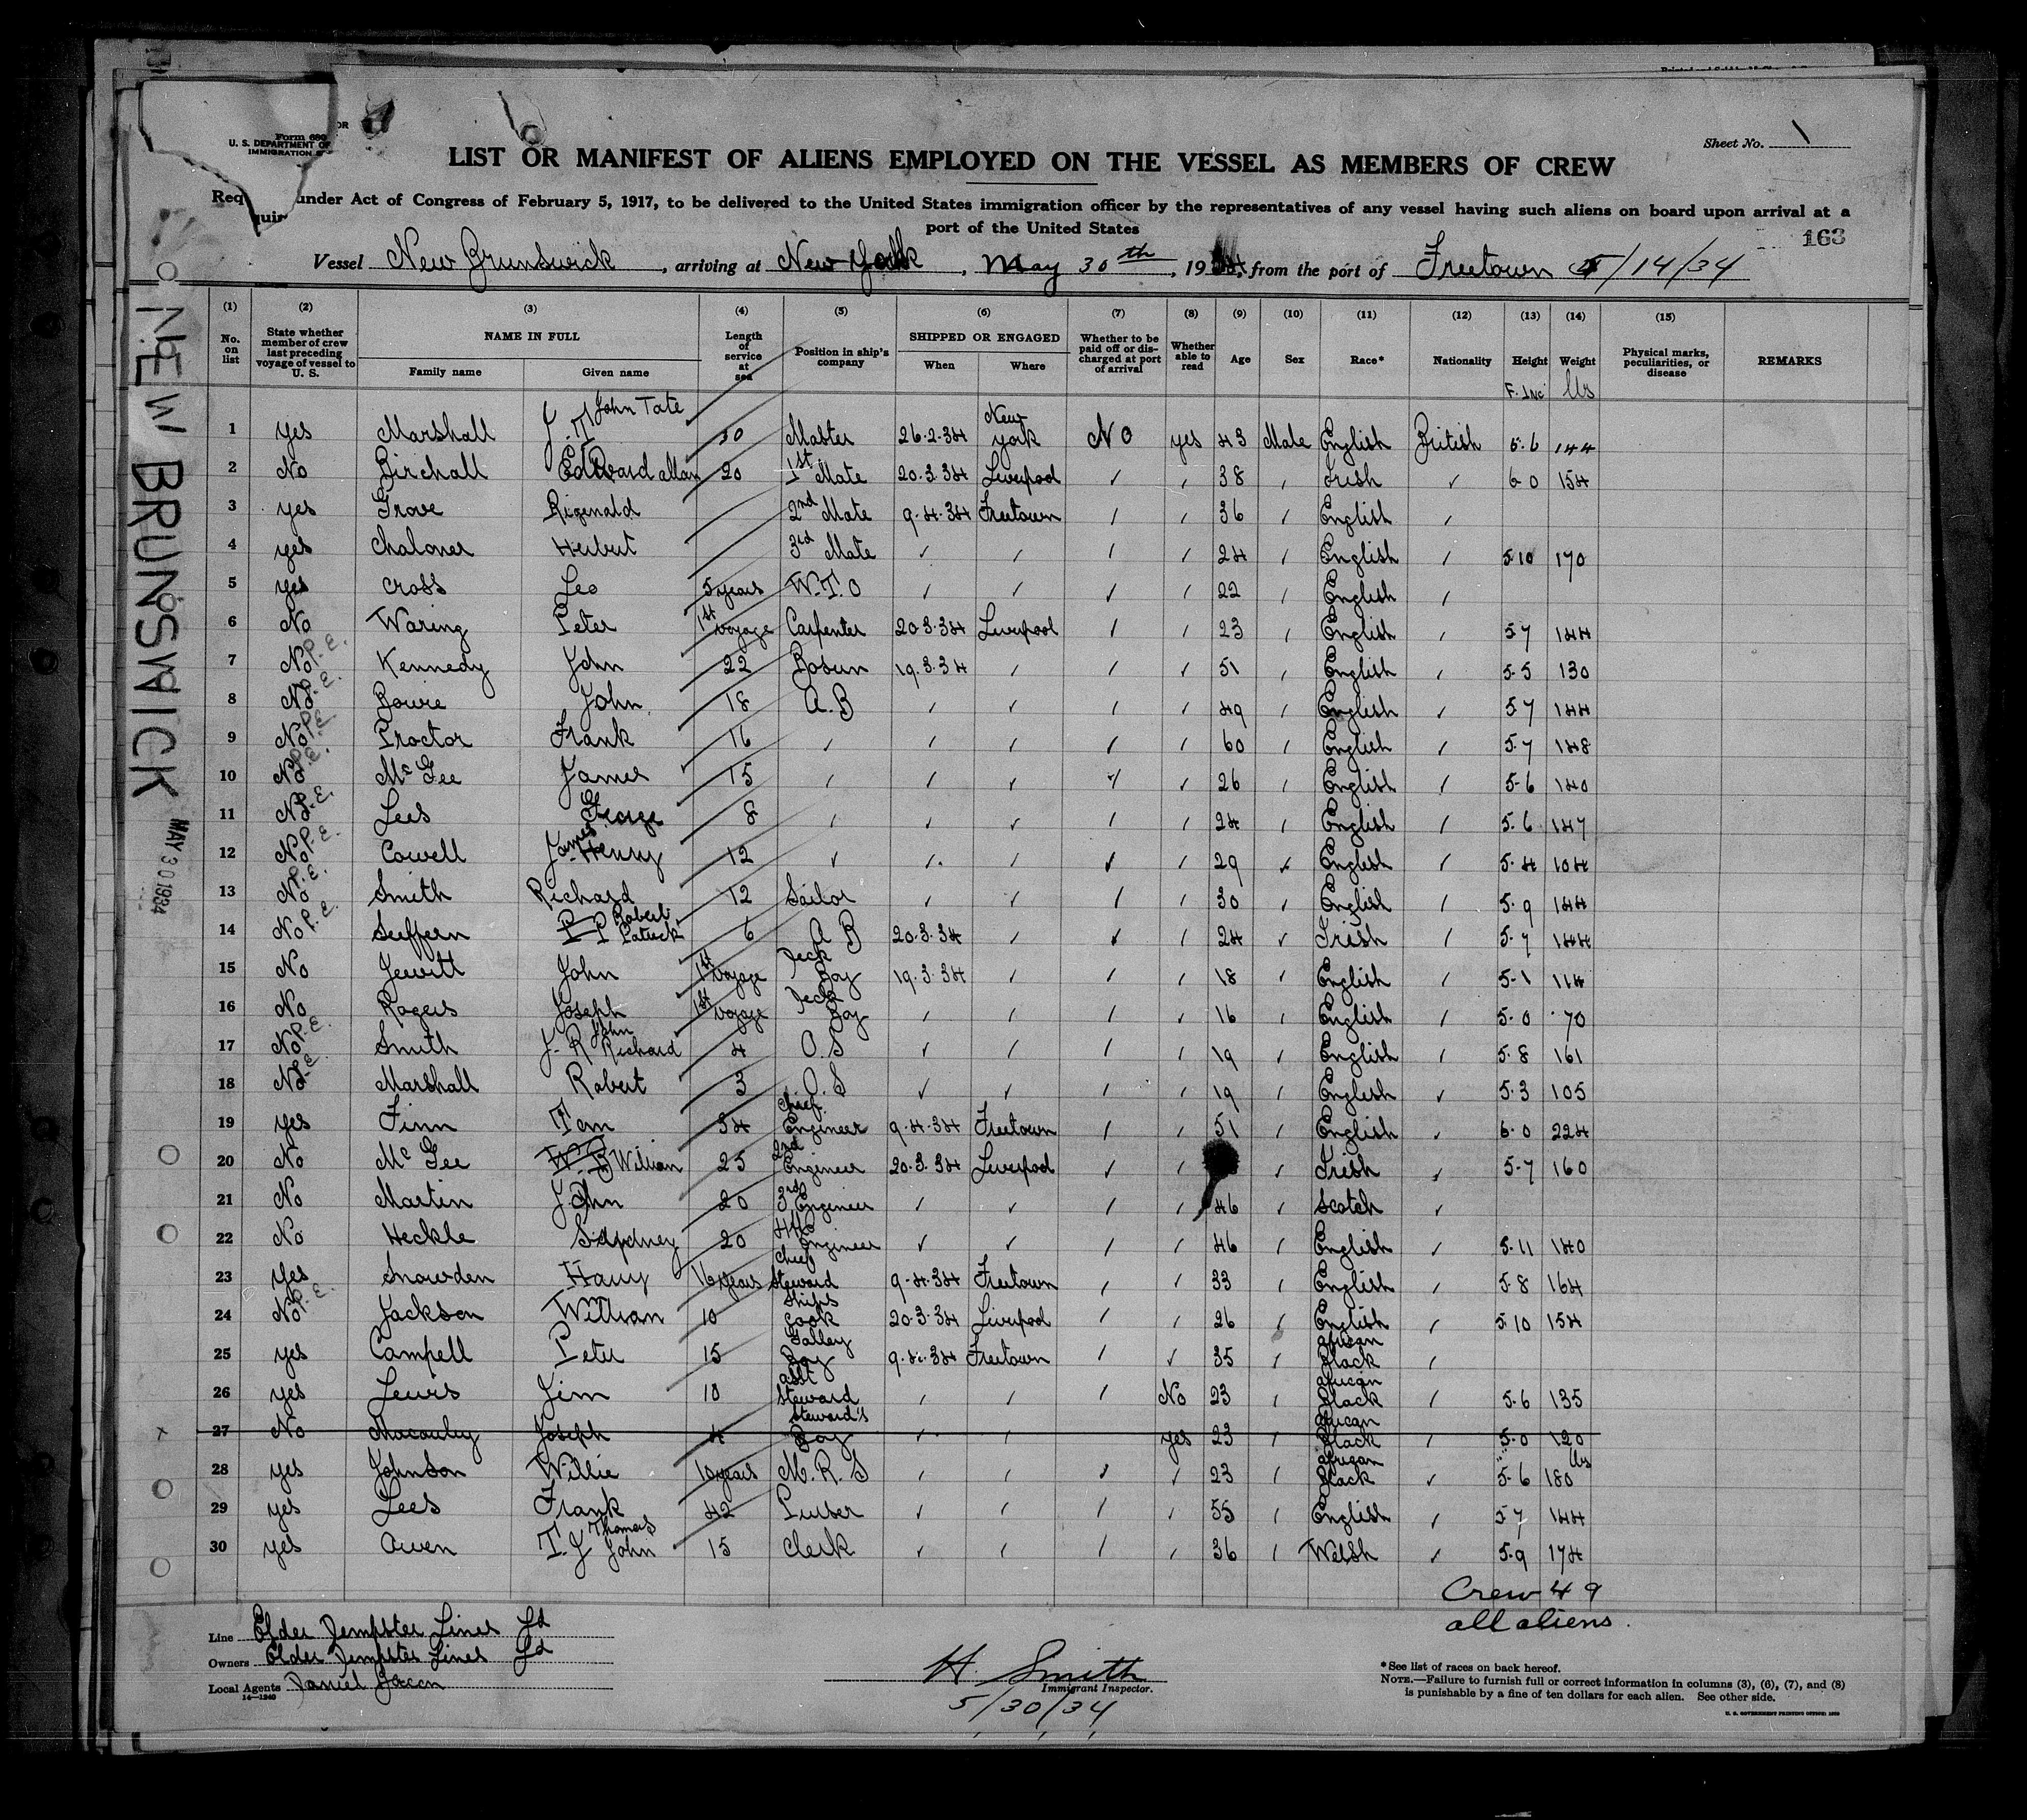 Form 680
U. S. DEPARTMENT OF
IMMIGRATION
Sheet No. 1
LIST OR MANIFEST OF ALIENS EMPLOYED ON THE VESSEL AS MEMBERS OF CREW
under Act of Congress of February 5, 1917, to be delivered to the United States immigration officer by the representatives of any vessel having such aliens on board upon arrival at a
port of the United States
163
Vessel New Brunswick, arriving at New York, May 30th, 1934, from the port of Freetown 5/14/34
NEW BRUNSWICK
MAY 30 1934
(1) (2) (3) (4) (5) (6) (7) (8) (9) (10) (11) (12) (13) (14) (15)
No. on list State whether member of crew last preceding voyage of vessel to U. S. NAME IN FULL Family name Given name Length of service at sea Position in ship's company SHIPPED OR ENGAGED When Where Whether to be paid off or discharged at port of arrival Whether able to read Age Sex Race* Nationality Height Weight Physical marks, peculiarities, or disease REMARKS
F. Inc lbs
1 yes Marshall J. T. John Tate 30 Master 26.2.34 New York No yes 43 Male English British 5.6 144
2 No Birchall Edward Allan 20 1st Mate 20.3.34 Liverpool ✓ ✓ 38 ✓ Irish ✓ 6 0 154
3 yes Grove Riginald 2nd Mate 9.4.34 Freetown ✓ ✓ 36 ✓ English ✓
4 yes Chaloner Herbert 3rd Mate ✓ ✓ ✓ ✓ 24 ✓ English ✓ 5 10 170
5 yes Cross Leo 5 years W.T.O ✓ ✓ ✓ ✓ 22 ✓ English ✓
6 No Waring Peter 1st voyage Carpenter 20.3.34 Liverpool ✓ ✓ 23 ✓ English ✓ 5 7 144
7 No P.E. Kennedy John 22 Bosun 19.3.34 ✓ ✓ ✓ 51 ✓ English ✓ 5.5 130
8 No P.E. Bowie John 18 A.B ✓ ✓ ✓ ✓ 49 ✓ English ✓ 5 7 144
9 No P.E. Proctor Frank 16 ✓ ✓ ✓ ✓ ✓ 60 ✓ English ✓ 5.7 148
10 No P.E. Mc Gee James 15 ✓ ✓ ✓ ✓ ✓ 26 ✓ English ✓ 5-6 140
11 No P.E. Lees George 8 ✓ ✓ ✓ ✓ ✓ 24 ✓ English ✓ 5.6 147
12 No P.E. Cowell James Henry 12 ✓ ✓ ✓ ✓ ✓ 29 ✓ English ✓ 5.4 104
13 No P.E. Smith Richard 12 Sailor ✓ ✓ ✓ ✓ 30 ✓ English ✓ 5.9 144
14 No P.E. Suffern Robert Patrick 6 A B 20.3.34 ✓ ✓ ✓ 24 ✓ Irish ✓ 5.7 144
15 No Jewitt John 1st voyage Deck Boy 19.3.34 ✓ ✓ ✓ 18 ✓ English ✓ 5-1 114
16 No Rogers Joseph 1st voyage Deck Boy ✓ ✓ ✓ ✓ 16 ✓ English ✓ 5.0 70
17 No P.E. Smith J. R John Richard 4 O.S ✓ ✓ ✓ ✓ 19 ✓ English ✓ 5.8 161
18 No P.E. Marshall Robert 3 O.S ✓ ✓ ✓ ✓ 19 ✓ English ✓ 5.3 105
19 yes Finn Tom 34 Chief Engineer 9.4.34 Freetown ✓ ✓ 51 ✓ English ✓ 6.0 224
20 No Mc Gee William 25 2nd Engineer 20.3.34 Liverpool ✓ ✓ ✓ Irish ✓ 5-7 160
21 No Martin John 20 3rd Engineer ✓ ✓ ✓ ✓ 46 ✓ Scotch ✓
22 No Heckle Sydney 20 4th Engineer ✓ ✓ ✓ ✓ 46 ✓ English ✓ 5.11 140
23 yes Snowden Harry 16 years Chief Steward 9.4.34 Freetown ✓ ✓ 33 ✓ English ✓ 5 8 164
24 No P.E. Jackson William 10 Ships Cook 20.3.34 Liverpool ✓ ✓ 26 ✓ English ✓ 5.10 154
25 yes Campell Peter 15 Galley Boy 9.4.34 Freetown ✓ ✓ 35 ✓ African Black ✓
26 yes Lewis Jim 10 Asst Steward ✓ ✓ ✓ No 23 ✓ African Black ✓ 5.6 135
27 No Macauley Joseph 4 Steward's Boy ✓ ✓ yes 23 ✓ African Black ✓ 5.0 120
28 yes Johnson Willie 10 years M.R.S ✓ ✓ ✓ ✓ 23 ✓ African Black ✓ 5-6 180 lbs
29 yes Lees Frank 42 Purser ✓ ✓ ✓ ✓ 55 ✓ English ✓ 5 7 144
30 yes Owen T. J Thomas John 15 Clerk ✓ ✓ ✓ ✓ 36 ✓ Welsh ✓ 5.9 174
Crew 49
all aliens.
Line Elder Dempster Lines Ld
Owners Elder Dempster Lines Ld
Local Agents Daniel Bacon
14—1240
H. Smith
Immigrant Inspector.
5/30/34
*See list of races on back hereof.
NOTE.—Failure to furnish full or correct information in columns (3), (6), (7), and (8)
is punishable by a fine of ten dollars for each alien. See other side.
U. S. GOVERNMENT PRINTING OFFICE